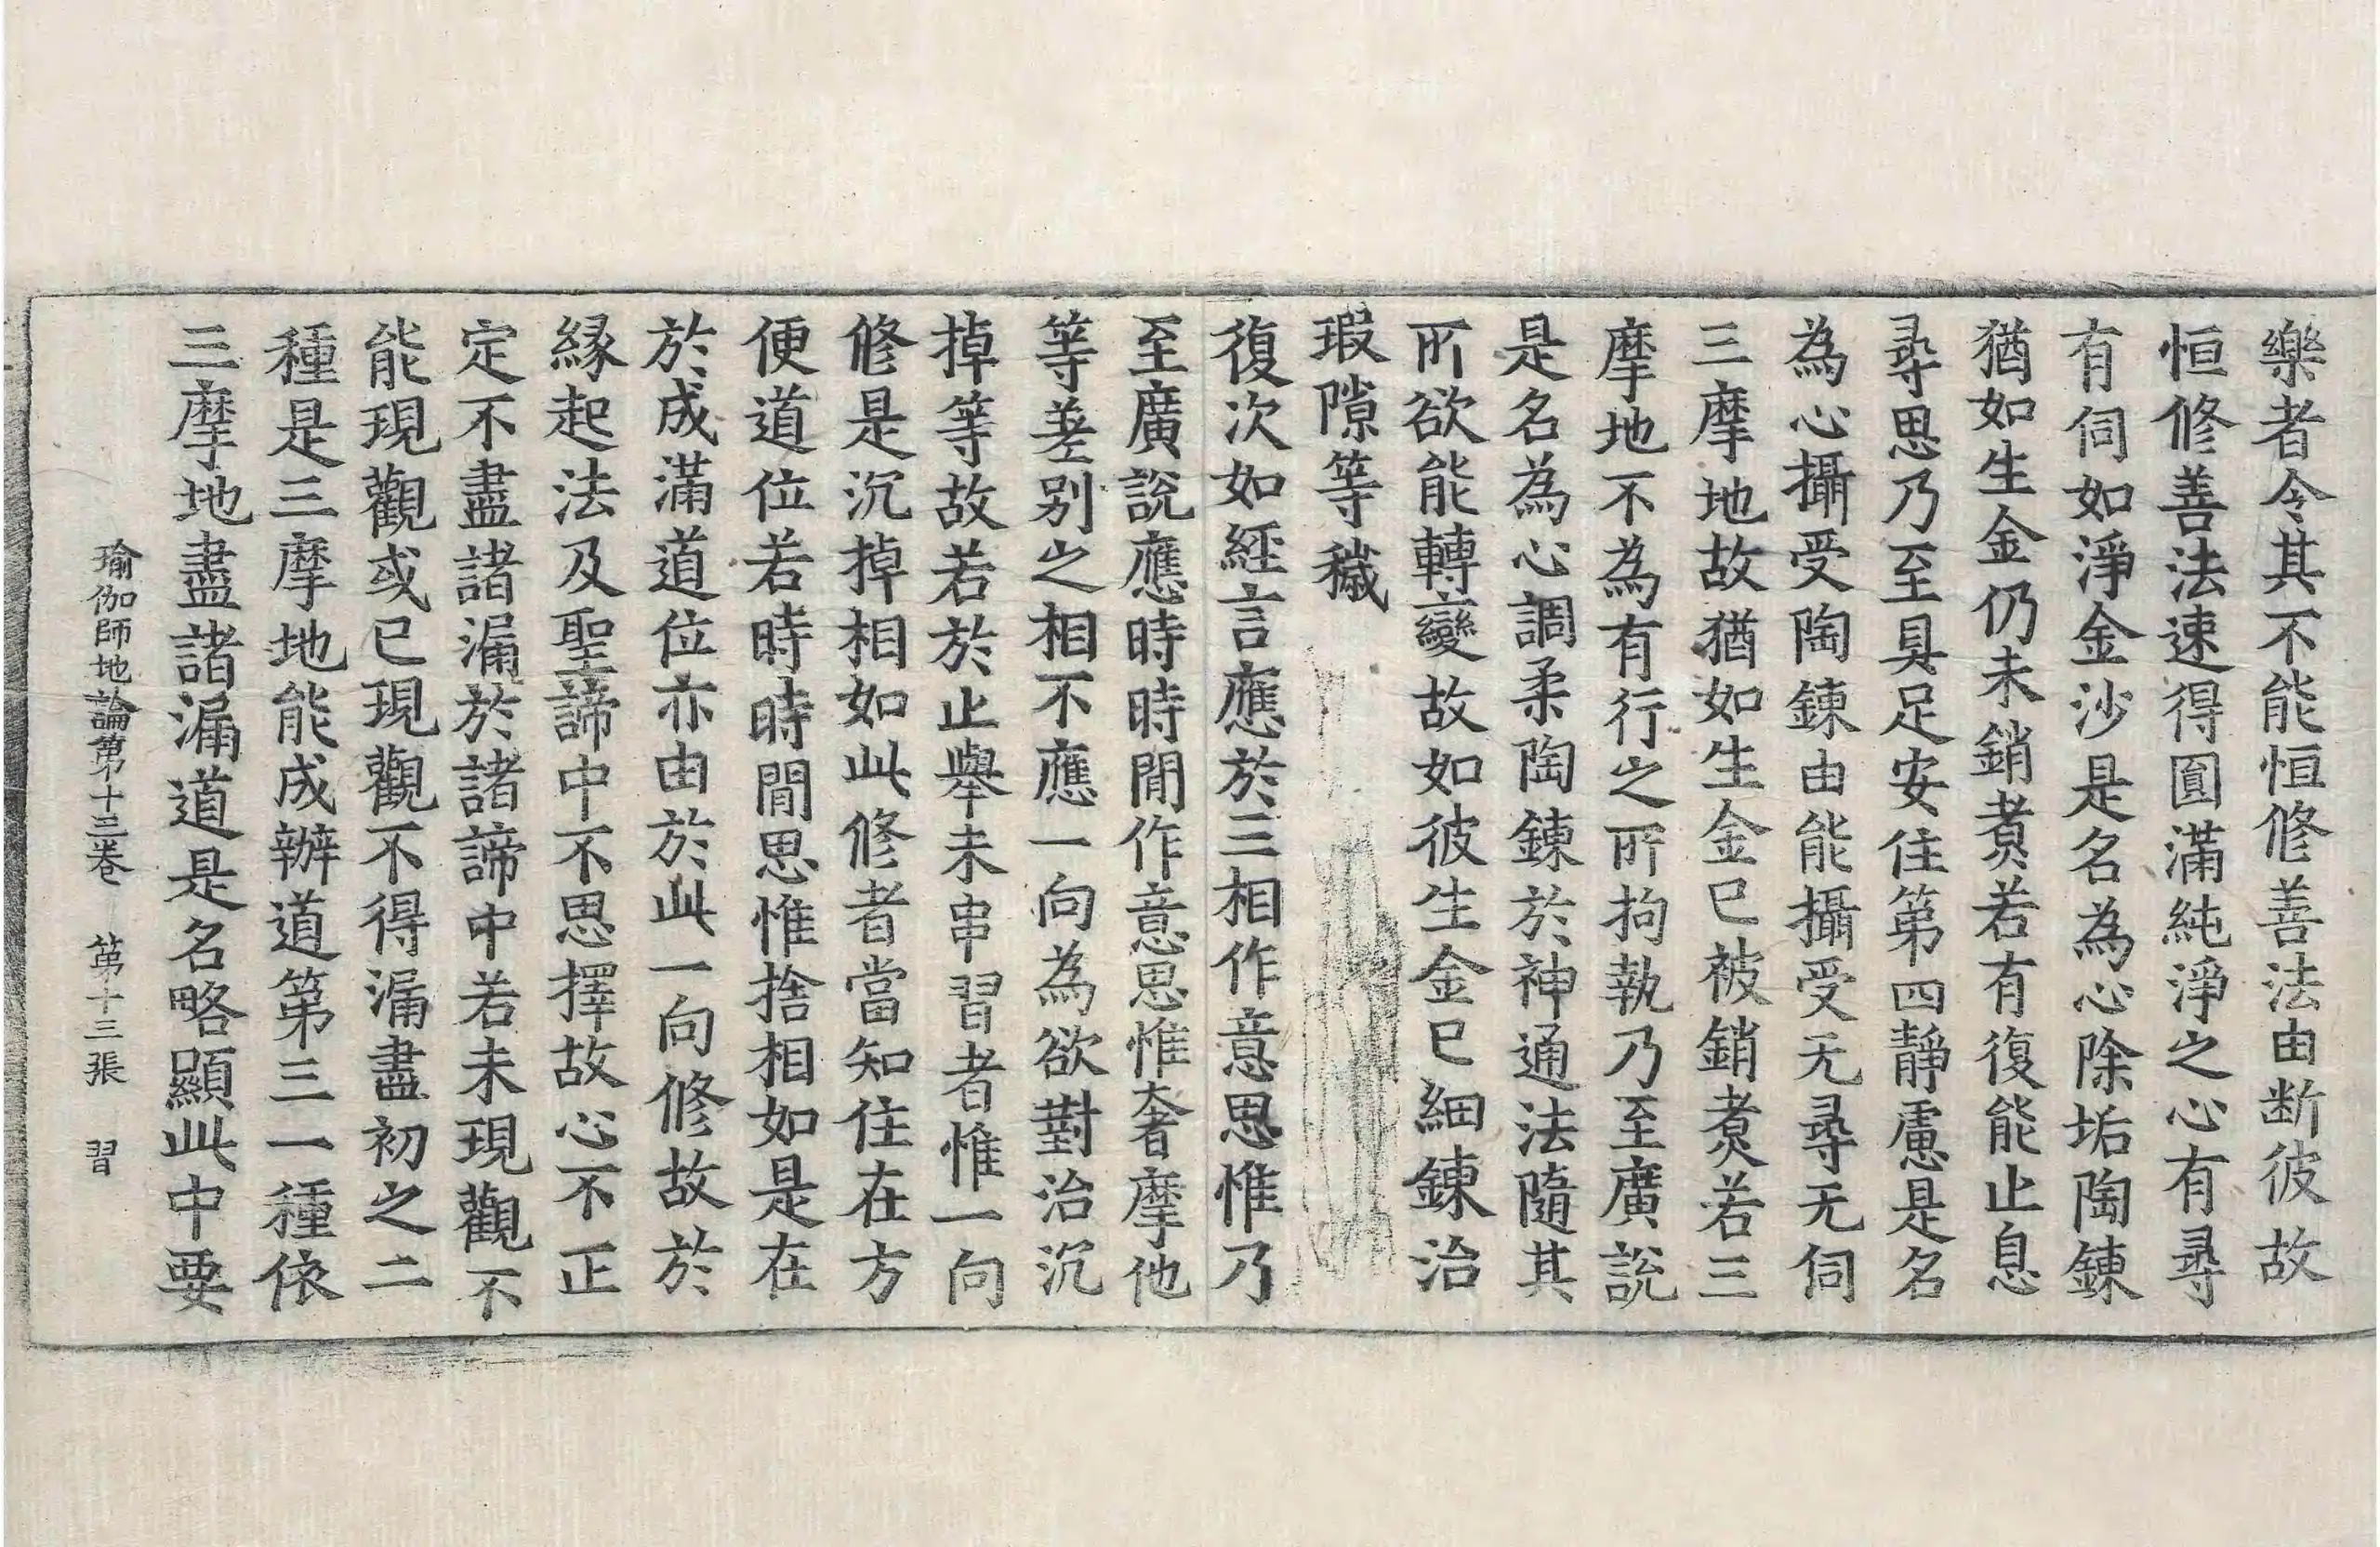 樂者令其不能恒修善法由断彼故
恒修善法速得圓滿純淨之心有尋
有伺如淨金沙是名為心除垢陶鍊
猶如生金仍未銷煑若有復能止息
尋思乃至具足安住第四靜慮是名
為心攝受陶鍊由能攝受无尋无伺
三摩地故猶如生金已被銷煑若三
摩地不為有行之所拘執乃至廣說
是名為心調柔陶鍊於神通法隨其
所欲能轉變故如彼生金已細鍊治
瑕隙等穢
復次如經言應於三相作意思惟乃
至廣說應時時閒作意思惟奢摩他
等差別之相不應一向為欲對治沉
掉等故若於止舉未串習者惟一向
修是沉掉相如此修者當知住在方
便道位若時時閒思惟捨相如是在
於成滿道位亦由於此一向修故於
緣起法及聖諦中不思擇故心不正
定不盡諸漏於諸諦中若未現觀不
能現觀或已現觀不得漏盡初之二
種是三摩地能成辦道第三一種依
三摩地盡諸漏道是名略顯此中要
瑜伽師地論第十三卷 第十三張 習